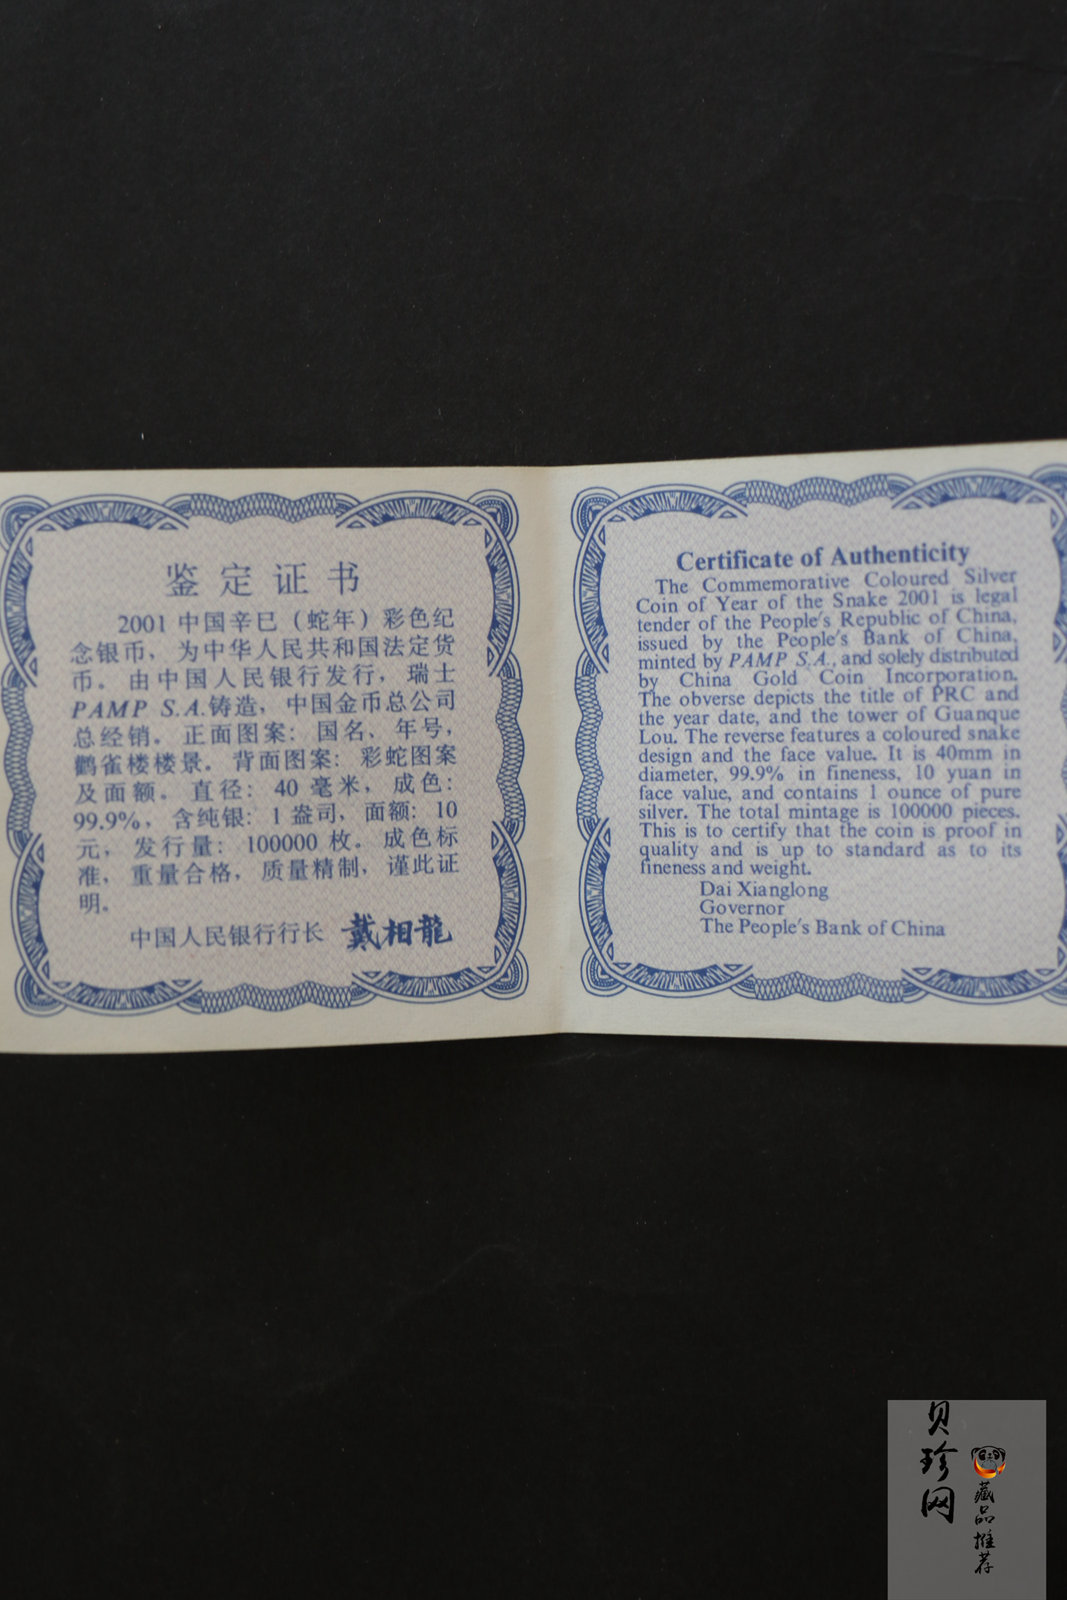 鉴定证书
2001 中国辛巳（蛇年）彩色纪
念银币，为中华人民共和国法定货
币。由中国人民银行发行，瑞士
PAMP S.A.铸造，中国金币总公司
总经销。正面图案：国名、年号，
鹳雀楼楼景。背面图案：彩蛇图案
及面额。直径：40 毫米，成色：
99.9%，含纯银：1 盎司，面额：10
元，发行量：100000 枚。成色标
准，重量合格，质量精制，谨此证
明。
中国人民银行行长 戴相龍
Certificate of Authenticity
The Commemorative Coloured Silver
Coin of Year of the Snake 2001 is legal
tender of the People's Republic of China,
issued by the People's Bank of China,
minted by PAMP S.A., and solely distributed
by China Gold Coin Incorporation.
The obverse depicts the title of PRC and
the year date, and the tower of Guanque
Lou. The reverse features a coloured snake
design and the face value. It is 40mm in
diameter, 99.9% in fineness, 10 yuan in
face value, and contains 1 ounce of pure
silver. The total mintage is 100000 pieces.
This is to certify that the coin is proof in
quality and is up to standard as to its
fineness and weight.
Dai Xianglong
Governor
The People's Bank of China
贝珍网
藏品推荐